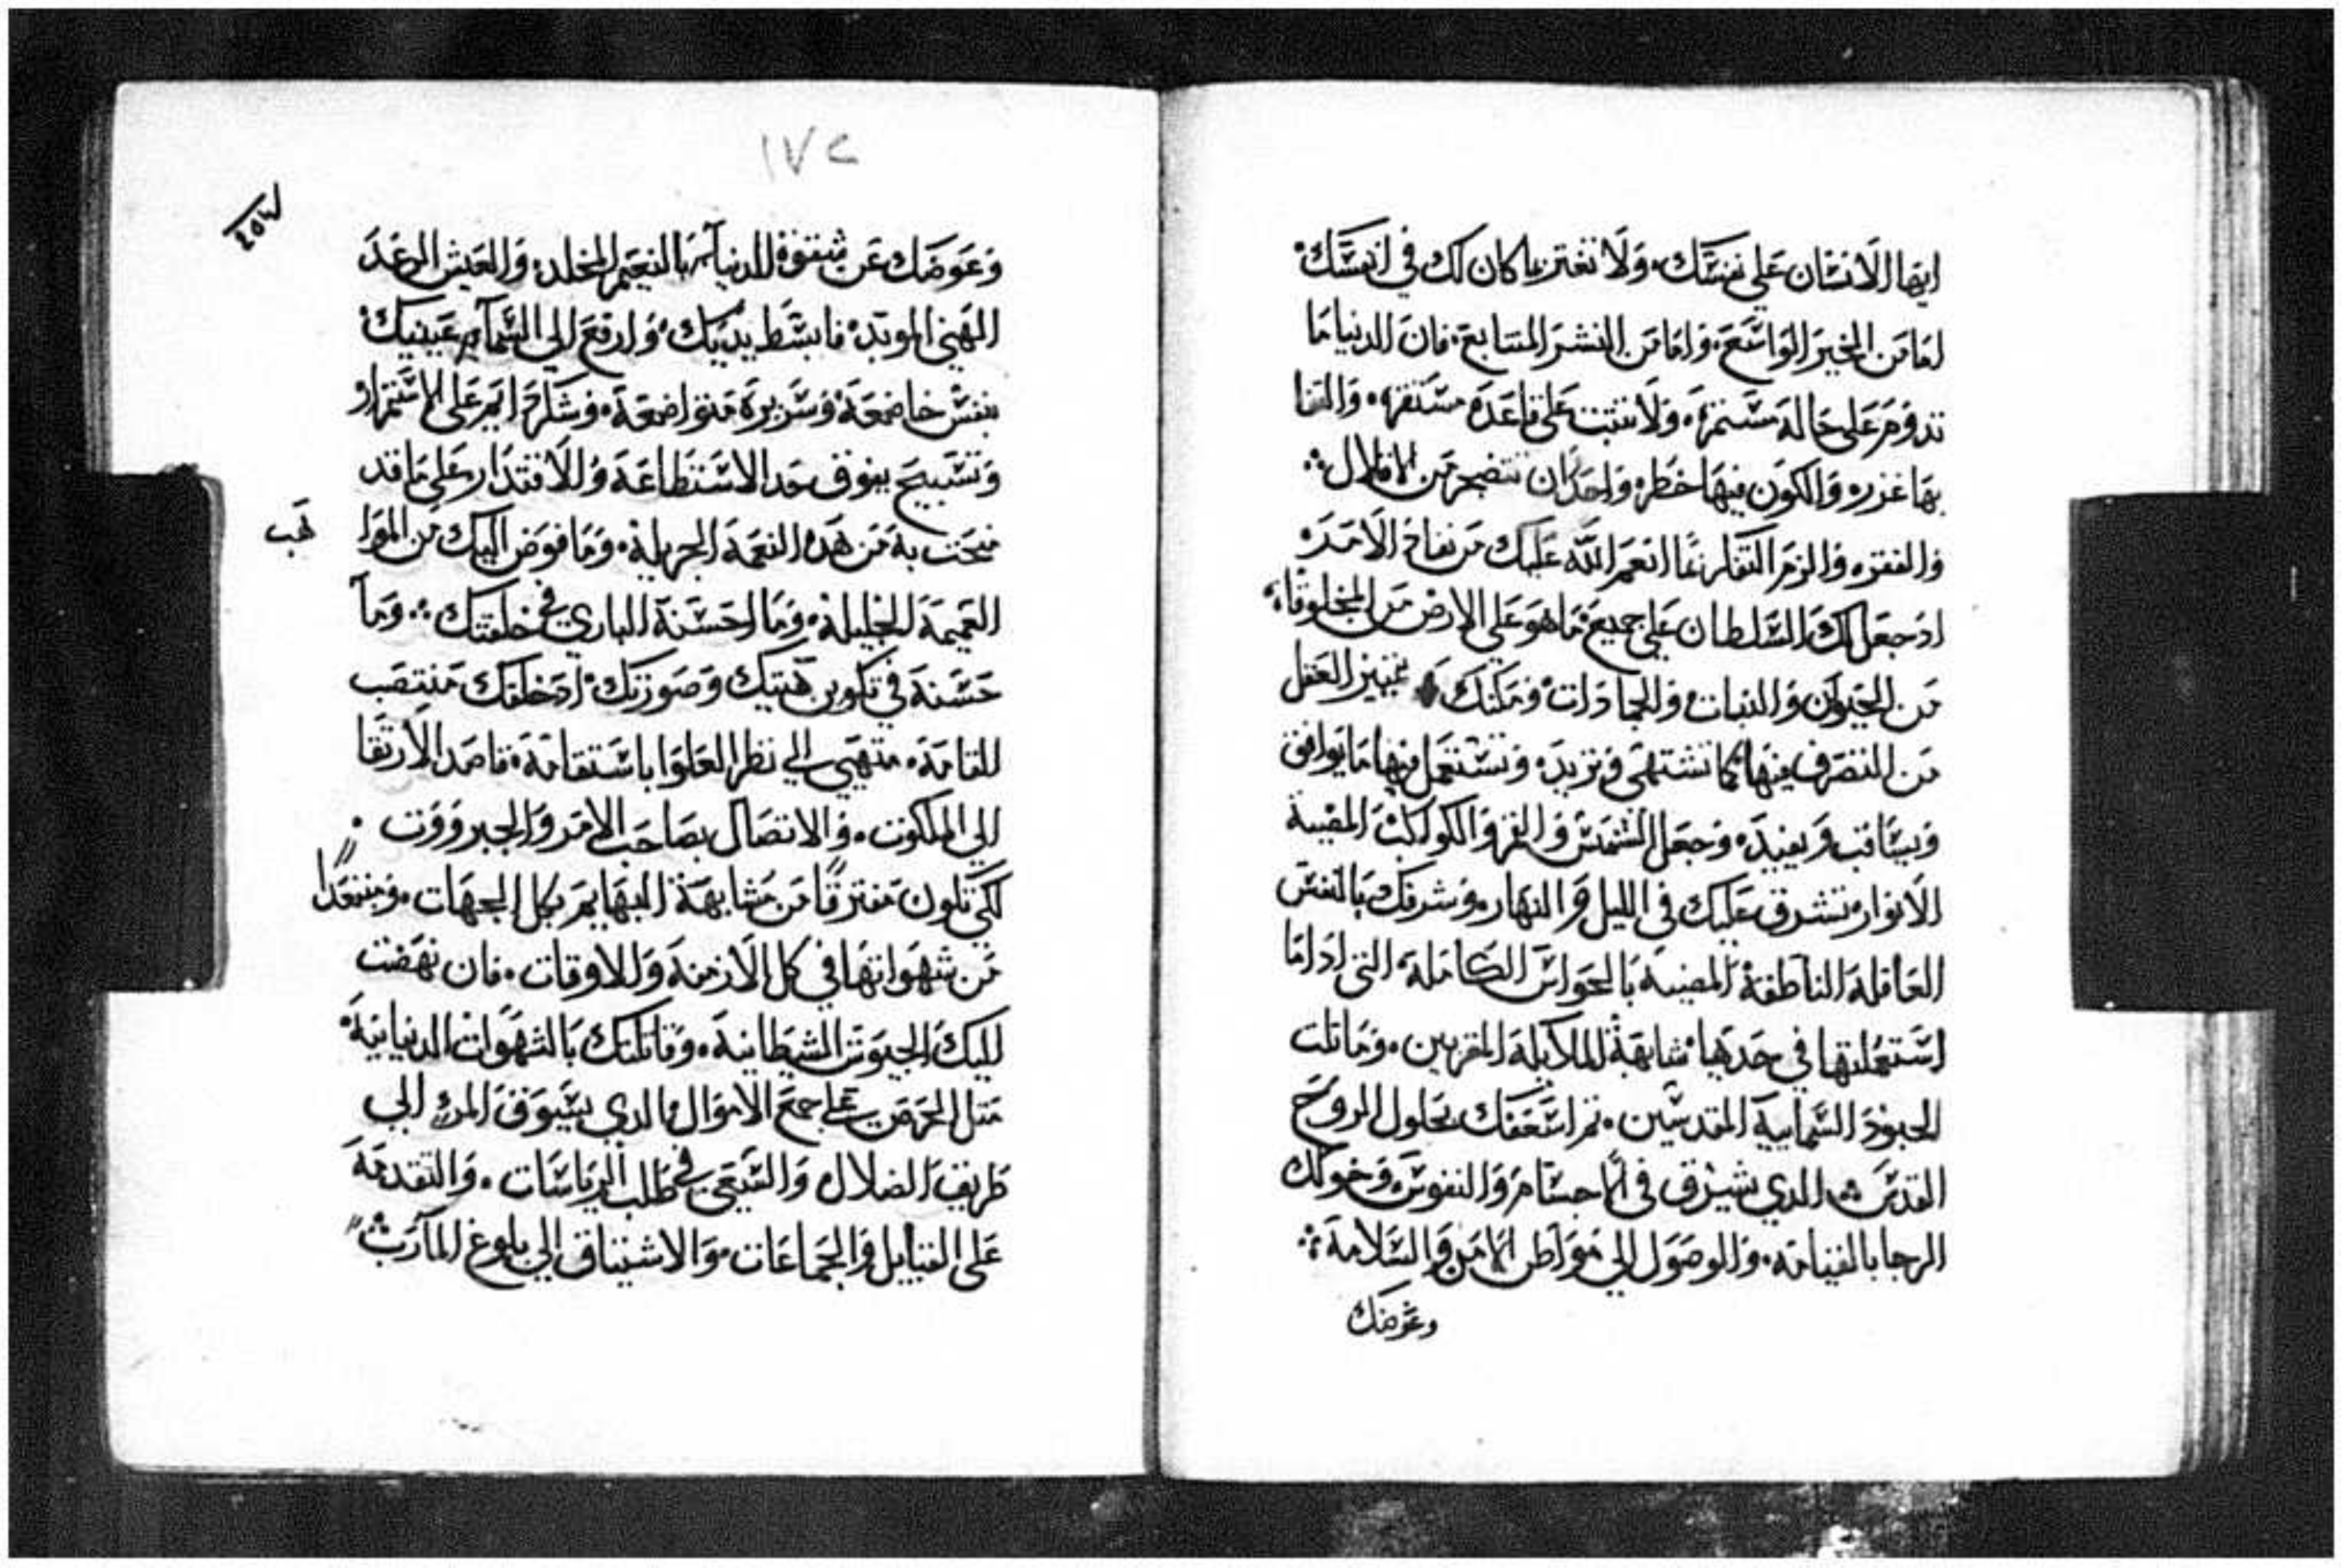 ايها الانسان على نفسك. ولا تغتر بما كان لك في امسك.
اما من الخير الواسع. واما من الشر المتتابع. فان الدنيا ما
تدوم على حاله مستمره. ولا تثبت على قاعده مستقره. والثقا
بها غرره والكون فيها خطره واحدر ان تتضجر من الاقلال
والفقره والزم التفكر بما انعم الله عليك من نعامه الامده
اد جعل لك السلطان على جميع ما هو على الارض من المخلوقات
من الحيوان والنبات والجمادات ومكنك تمييز العقل
من التصرف فيها كما تشتهي وتريده وتستعمل منها ما يوافق
ويساقب ويفيده وجعل الشمس والقمر والكواكب المضية
الانوار تشرق عليك في الليل والنهار. وشرفك بالنفس
العاقلة الناطقة المضيية بالحواس الكاملة التي ادا ما
استعملتها في حدها شابهة الملايكة المقربين. وماتلت
الجنود السمايية المقدسين. ثم اسعفك بحلول الروح
القدس الدي يشرق في الاجسام والنفوس وخولك
الرجا بالقيامه. والوصول الي مواطن الامن والسلامة
وعوضك
١٧٢
وعوضك عن شقوة الدنيا بالنعيم المخلد. والعيش الرغد
الهني الموبد. فابسط يديك. وارفع الي السما عينيك.
بنفس خاضعة وسريرة متواضعة. وشكر دايم على الاستمرار
وتسبيح يفوق حد الاستطاعة والاقتدار على ما قد
منحت به من هده النعمة الجزيلة. وما فوض اليك من الموا
هب
العميمة الجليلة. وما احسنة الباري في خلقتك. وما
حسنة في تكوين هيتك وصورتك. اد خلقك منتصب
القامة. متهيي الي نظر العلوا باستقامة. قاصد الارتقا
الي الملكوت. والاتصال بصاحب الامر والجبرووت.
لكي تكون مفترقا من مشابهة البهايم بكل الجهات. ومبتعدا
من شهواتها في كل الازمنة والاوقات. فان نهضت
اليك الجيوش الشيطانية. وقاتلتك بالشهوات الدنيانية
متل الحرص على جمع الاموال الدي يسوق المرء الي
طريق الضلال والسعي في طلب الرياسات. والتقدمة
على القبايل والجماعات. والاشتياق الي بلوغ المآرب